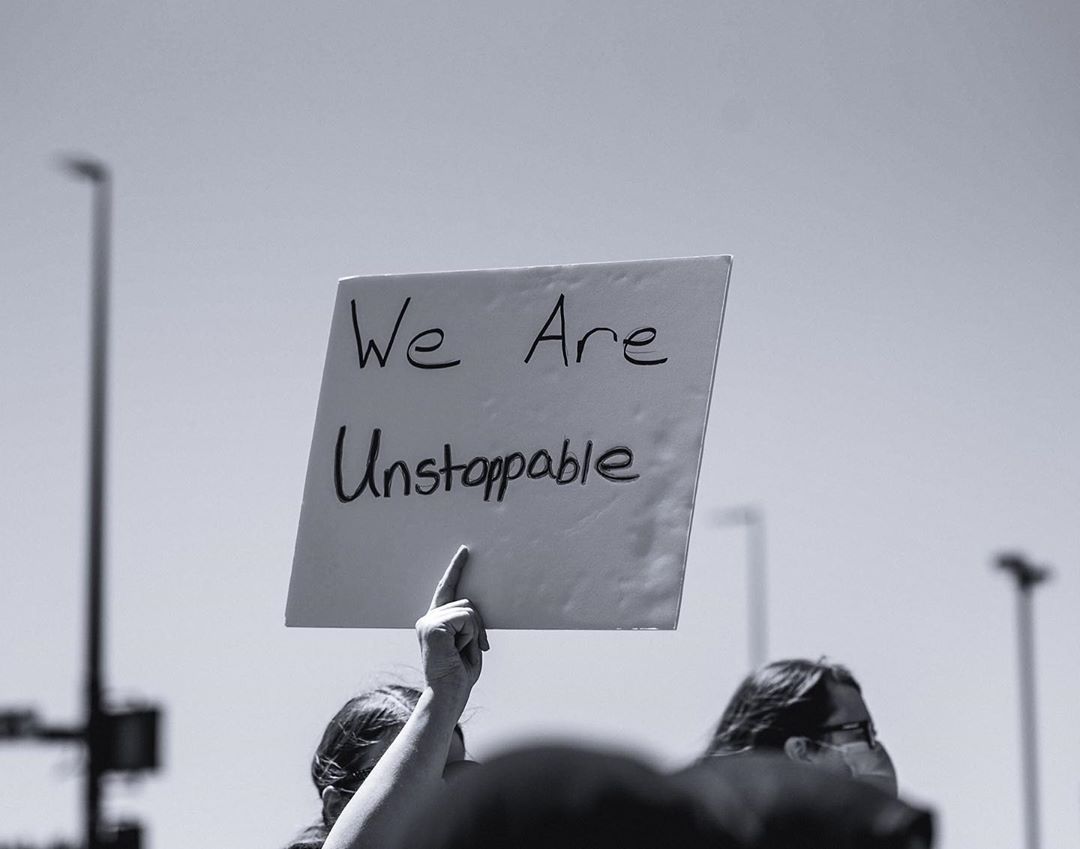 We Are
Unstoppable